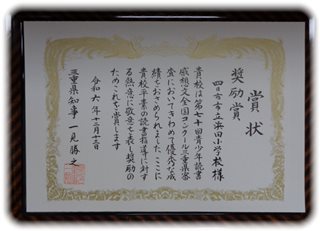 賞状
奨励賞
四日市市立浜田小学校様
貴校は第七十回青少年読書
感想文全国コンクール三重県審
査においてきわめて優秀な成
績をおさめられました ここに
貴校平素の読書指導に対す
る熱意に敬意を表し奨励の
ためこれを賞します
令和六年十二月十二日
三重県知事 一見勝之